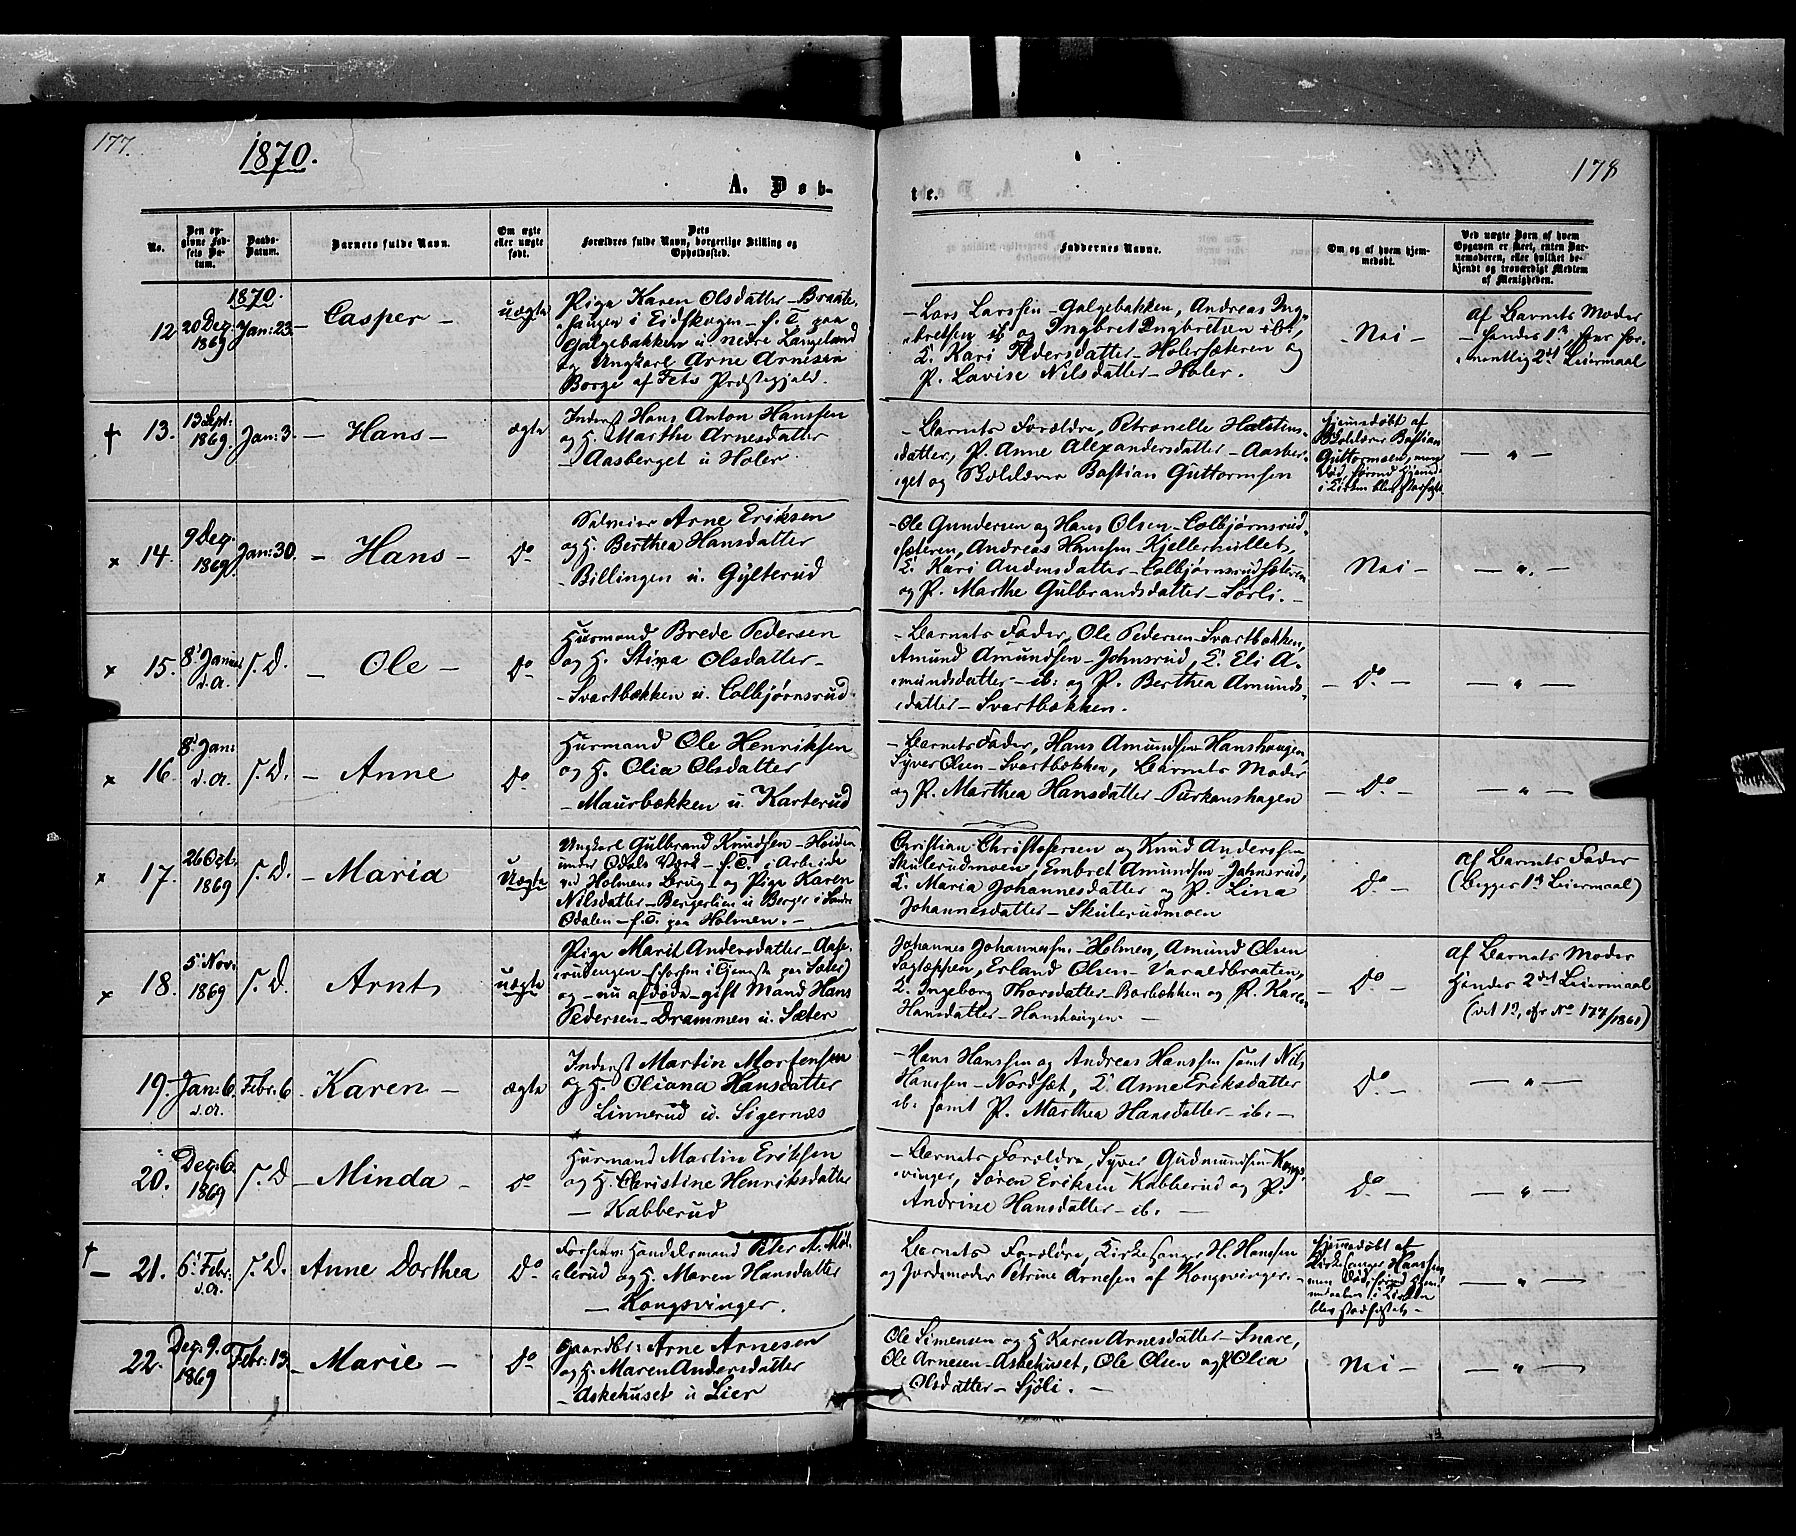 177.
1870.
A. Døb-
No.
Den op-
givne Fød-
sels Da-
tum.
Daabs-
Datum.
Barnets fulde Navn.
Om ægte
eller uægte
født.
Dets
Forældres fulde Navn, borgerlige Stilling og
Opholdssted.
1870.
12
20 Dec:
1869
Jan: 23.
Casper –
uægte
Pige Karen Olsdatter – Braate-
haugen i Eidskogen – f. T. paa
Galgebakken u nedre Langeland
og Ungkarl Arne Arnesen
Borge af Fets Præstegjeld.
† 13.
13 Sept:
1869.
Jan: 3.
– Hans –
ægte
Inderst Hans Anton Hanssen
og H. Marthe Arnesdatter
– Aasberget u Holer
x 14.
9 Dec.
1869.
Jan: 30.
– Hans –
Do
Arne Eriksen
og H. Berthea Hansdatter
Billingen u. Gylterud
x 15.
8' Januar
d. A.
s. D.
– Ole –
Do
Husmand Brede Pedersen
og H. Stina Olsdatter –
– Svartbækken u. Colbjørnsrud
x 16.
8' Jan:
d. A.
s. D.
– Anne
Do
Husmand Ole Henriksen
og H. Olia Olsdatter
– Maurbækken u. Karterud
x 17.
26 Oct.
1869
s. D.
– Maria
Uægte
Ungkarl Gulbrand Knudsen – Heiden
under Odals Værk – f. T. i Arbeide
ved Holmens Brug – og Pige Karen
Nilsdatter – Bergerlien u Berger i Søndre
Odalen – f. T. paa Holmen. –
x 18.
5' Nov:
1869
s. D.
Arnt
uægte
Pige Marit Andersdatter – Aase-
rudengen – (forhen i Tjeneste paa Sæter)
og – nu afdøde – gift Mand Hans
Pedersen – Drammen u. Sæter
19.
Jan: 6.
d. A.
Febr: 6
– Karen –
ægte
Inderst Martin Mortensen
og H. Oliana Hansdatter
Linnerud u. Sigernæs
20.
Dec: 6.
1869
s. D
– Minda –
Do
Husmand Martin Eriksen
og H. Christine Henriksdatter
– Kabberud
† – 21.
6' Febr:
d. A.
s. D.
Anne Dorthea
Do
Forhenv: Handelsmand Peter A. Møl-
lerud og H. Maren Hansdatter
– Kongsvinger.
22.
Dec: 9.
1869
Febr: 13.
– Marie –
Do
Gaardbr: Arne Arnesen
og H. Maren Andersdatter
– Askehuset u Lier
178
te.
Faddernes Navne.
Om og af hvem hjem-
medøbt.
Ved uægte Børn af hvem
Opgaven er skeet, enten Bar-
nemoderen, eller hvilket be-
kjendt og troværdigt Medlem
af Menigheden.
– Lars Larssen – Galgebakken, Andreas Ing-
bretsen ib og Ingbret Ingbretsen ib:,
K. Kari Pedersdatter – Holersæteren og
P. Lavise Nilsdatter – Holer.
– Nei –
af Barnets Moder
– hendes 1te hans for-
mentlig 2det Leiermaal
– Barnets Forældre, Petronelle Halstens-
datter, P. Anne Alexandersdatter – Aasber-
get og Skolelærer Bastian Guttormsen
Hjemmedøbt af
Skolelærer Bastian
Guttormsen, men
død, førend Hjemd:
i Kirken blev stadfæstet
– " –
– Ole Gundersen og Hans Olsen – Colbjørnsrud-
sæteren, Andreas Hanssen – Kjellerhullet,
K. Kari Andersdatter – Colbjørnsrudsæteren
og P. Marthe Gulbrandsdatter – Sørli. –
Nei –
– " –
– Barnets Fader, Ole Pedersen – Svartbækken,
Amund Amundsen – Johnsrud, K. Eli A-
mundsdatter – ib: og P. Berthea Amunds-
datter – Svartbækken.
– Do –
– " –
– Barnets Fader, Hans Amundsen – Hanshaugen,
Syver Olsen – Svartbækken, Barnets Moder
og P. Marthea Hansdatter –
– Do –
– " –
Christian Christophersen og Knud Anderssen
Skulerudmoen, Embret Amundsen – Johnsrud,
K. Maria Johannesdatter og P. Lina
Johannesdatter – Skulerudmoen
Do –
af Barnets Fader
(Begges 1te Leiermaal)
Johannes Johannessen – Holmen, Amund Olsen
Sagtæppen, Erland Olsen – Varaldbraaten,
K. Ingeborg Thorsdatter – Børbækken og P. Karen
Hansdatter – Hanshaugen –
– Do –
af Barnets Moder
Hendes 2det Leiermaal
(ved 1te, cfr No 177/1861)
– Hans Hanssen og Andreas Hanssen samt Nils
Hanssen – Nordsæt, K. Anne Eriksdatter
ib. samt P. Marthea Hansdatter – ib: –
Do –
– " –
– Barnets Forældre, Syver Gudmundsen – Kongs-
vinger, Søren Eriksen Kabberud og P.
Andrine Hansdatter – ib: –
Do –
– " –
Barnets Forældre, Kirkesanger H. Hanssen
og Jordemoder Petrine Arnesen af Kongsvinger. –
Hjemmedøbt af
Kirkesanger Hanssen
men død, førend Hjem-
medaaben i Kirken
blev stadfæstet –
– " –
Ole Simensen og H Karen Arnesdatter – Snare,
Ole Arnesen – Askehuset, Ole Olsen og P Olia
Olsdatter – Sjøli. –
Nei –
– " –